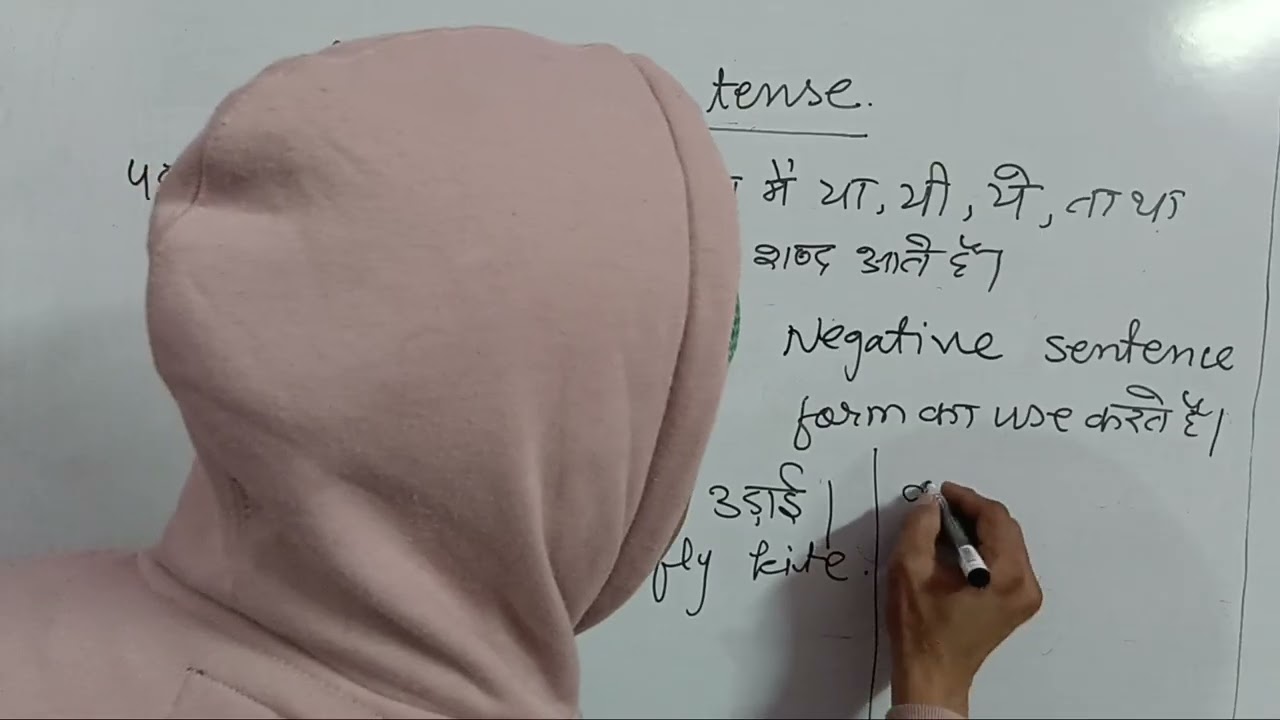 tense.
में या, यी, ये, ता था
शब्द आते हैं।
Negative sentence
form का use करते हैं।
उड़ाई।
fly kite.